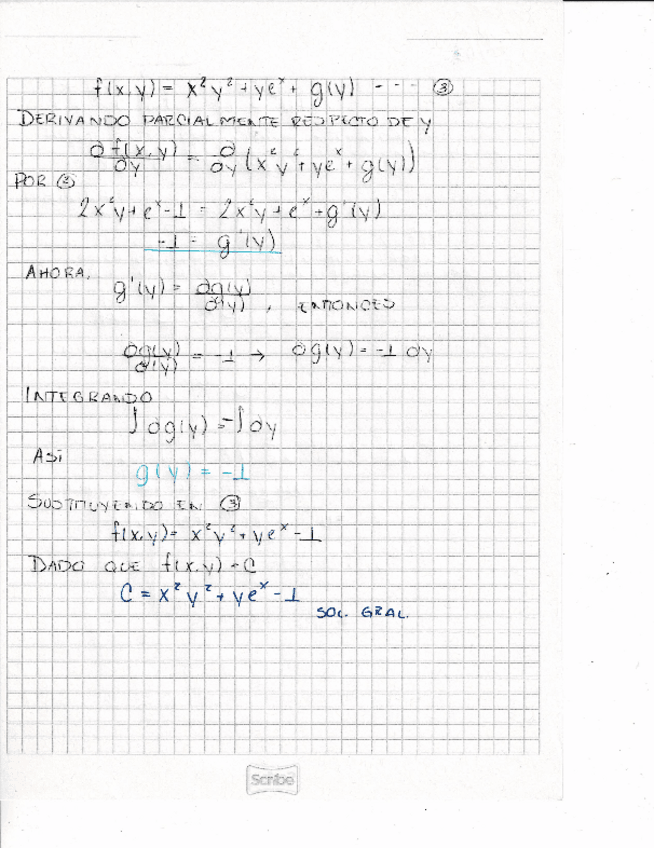 f(x,y) = x²y² + ye^x + g(y) - - - ③
DERIVANDO PARCIALMENTE RESPECTO DE y
∂f(x,y)/∂y = ∂/∂y (x²y² + ye^x + g(y))
POR ②
2x²y + e^x - 1 = 2x²y + e^x + g'(y)
-1 = g'(y)
AHORA,
g'(y) = ∂g(y)/∂(y) , ENTONCES
∂g(y)/∂(y) = -1 → ∂g(y) = -1 ∂y
INTEGRANDO
∫ ∂g(y) = -∫ ∂y
ASÍ
g(y) = -1
SUSTITUYENDO EN ③
f(x,y) = x²y² + ye^x - 1
DADO QUE f(x,y) = C
C = x²y² + ye^x - 1
SOL. GRAL.
Scribe